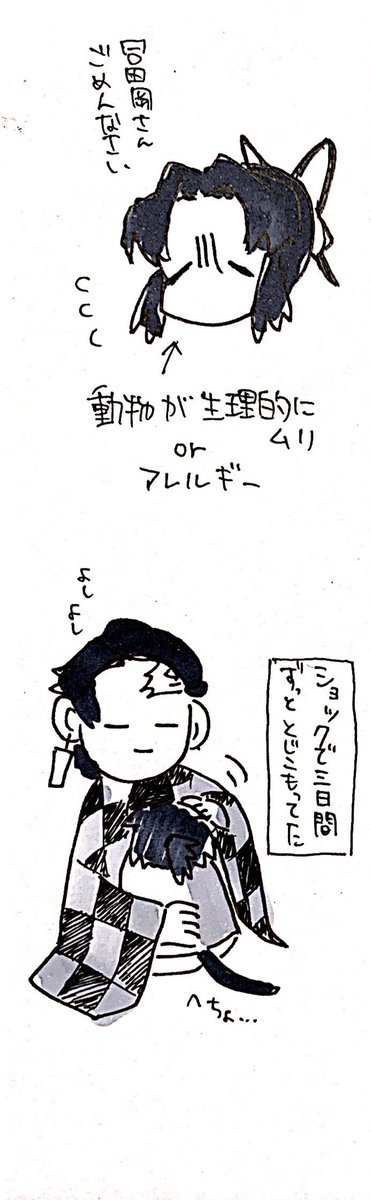 冨岡さん
ごめんなさい
動物が生理的に
ムリ
or
アレルギー
よし
よし
ショックで三日間
ずっととじこもってた
へちょ...